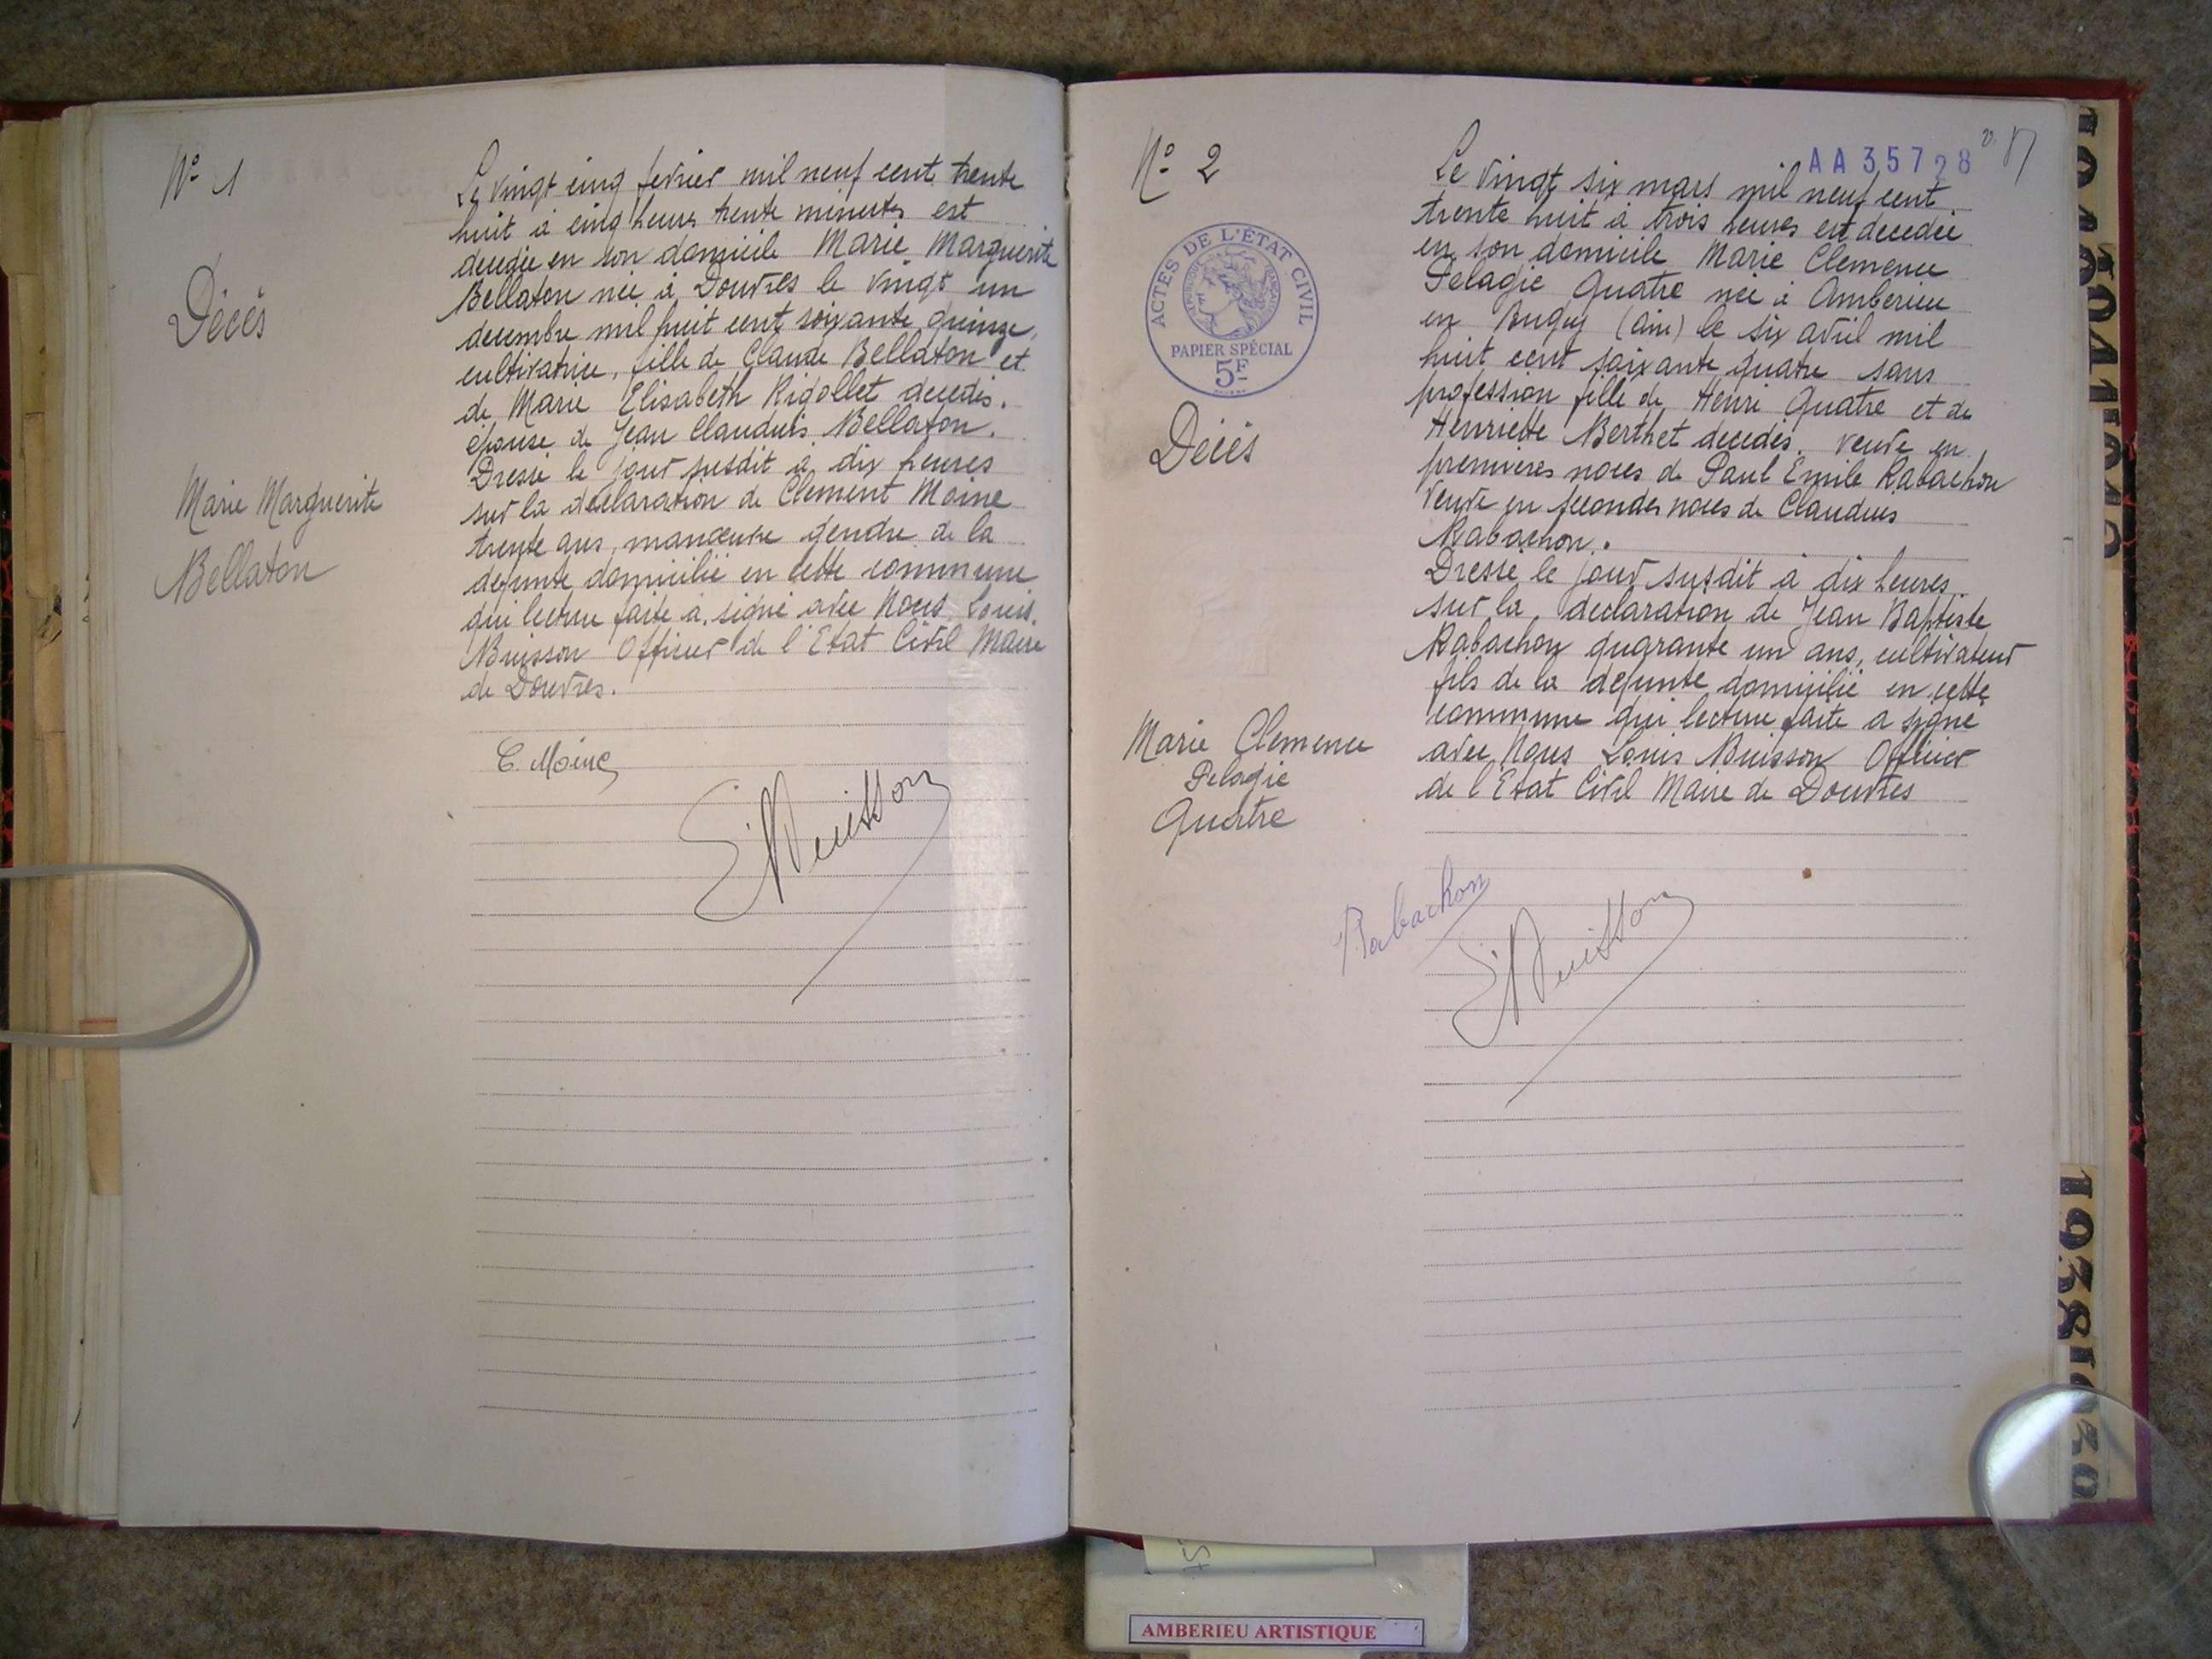 N° 1
Décès
Marie Marguerite
Bellaton
Le vingt cinq fevrier mil neuf cent trente
huit à cinq heures trente minutes est
decedée en son domicile Marie Marguerite
Bellaton née à Douvres le vingt un
decembre mil huit cent soixante quinze,
cultivatrice, fille de Claude Bellaton et
de Marie Elisabeth Rigollet decedés.
epouse de Jean Claudius Bellaton.
Dressé le jour susdit à dix heures
sur la déclaration de Clement Moine
trente ans, manœuvre gendre de la
defunte domicilié en cette commune
qui lecture faite a signé avec Nous Louis
Buisson Officier de l'Etat Civil Maire
de Douvres.
C. Moine
Buisson
N° 2
AA 35728
ACTES DE L'ÉTAT CIVIL
PAPIER SPÉCIAL
5F
Décès
Marie Clemence
Pelagie
Quatre
Le vingt six mars mil neuf cent
trente huit à trois heures est decedée
en son domicile Marie Clemence
Pelagie Quatre née à Amberieu
en Bugey (Ain) le six avril mil
huit cent soixante quatre sans
profession fille de Henri Quatre et de
Henriette Berthet decedés. veuve en
premieres noces de Paul Emile Rabachon
veuve en secondes noces de Claudius
Rabachon.
Dressé le jour susdit à dix heures
sur la déclaration de Jean Baptiste
Rabachon quarante un ans, cultivateur
fils de la defunte domicilié en cette
commune qui lecture faite a signé
avec Nous Louis Buisson Officier
de l'Etat Civil Maire de Douvres
Rabachon
Buisson
AMBERIEU ARTISTIQUE